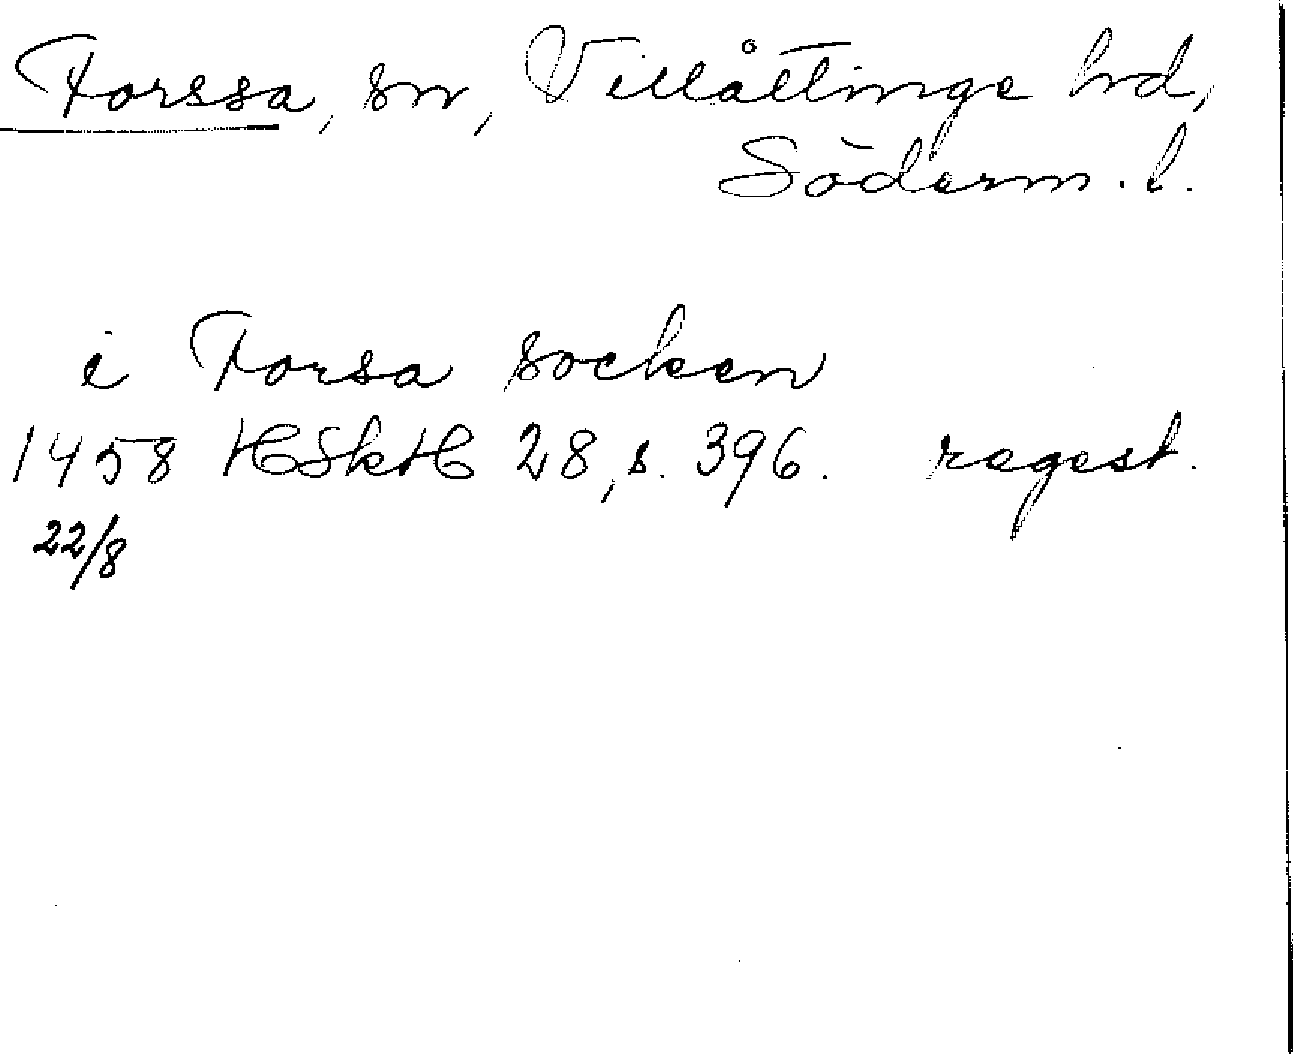 Forssa, sn, Villåttinge hd,
Söderm. l.
i Forsa socken
1458 HSkH 28, s. 396. regest.
22/8